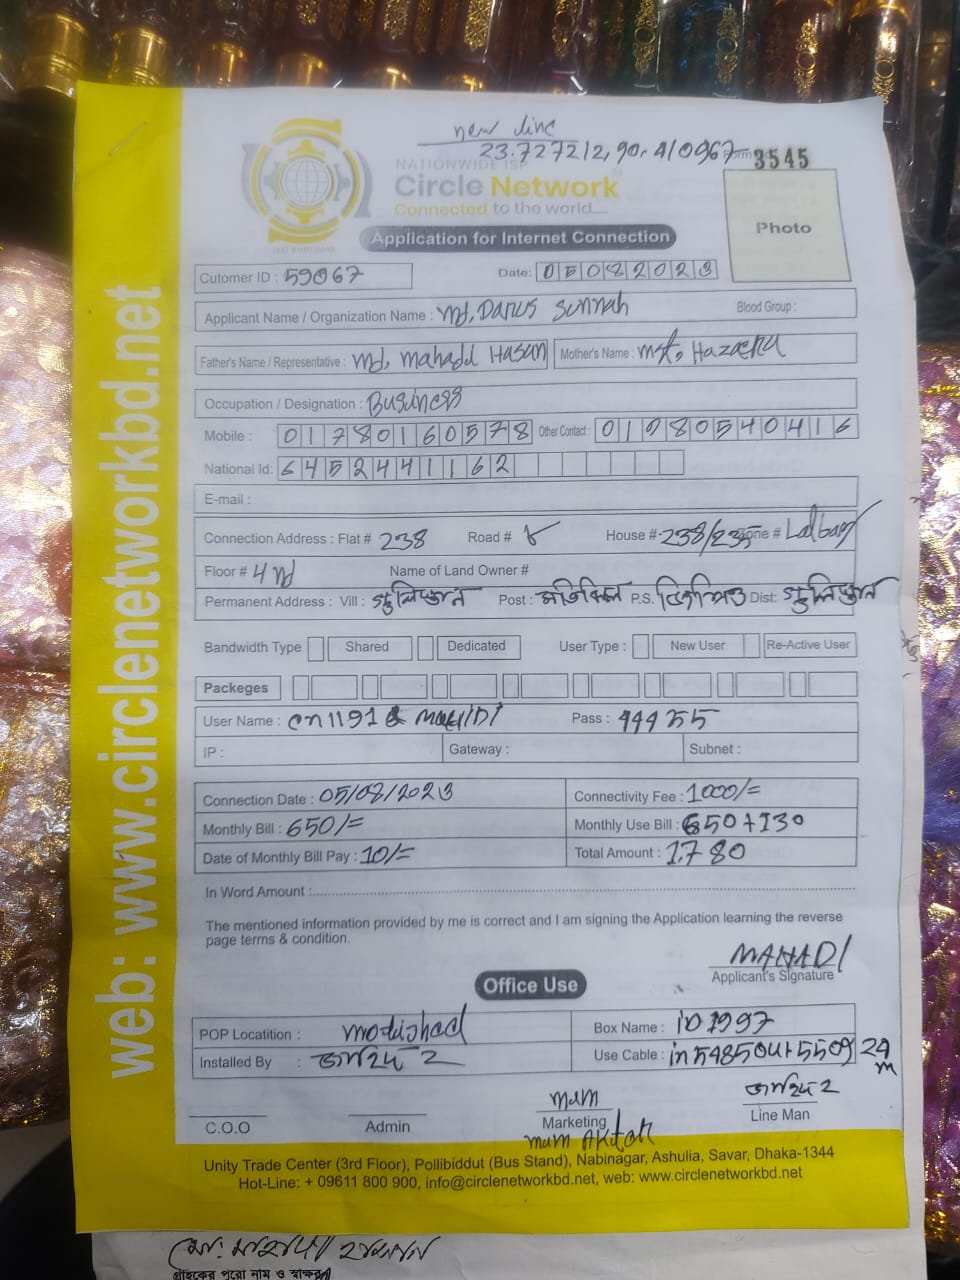 new line
23.727212, 90.410967
Form 3545
NATIONWIDE ISP
Circle Network
Connected to the world.....
Photo
Application for Internet Connection
Cutomer ID : 59067
Date: 05082023
Applicant Name / Organization Name : Md, Darus Sunnah Blood Group :
Father's Name / Representative : Md, Mahadd Hasan Mother's Name : Mst,
Occupation / Designation : Business
Mobile : 01780160578 Other Contact : 01980540416
National Id: 6452441162
E-mail :
Connection Address : Flat # 238 Road # House # 238/235 Zone # Lalbag
Floor # 4 Name of Land Owner #
Permanent Address : Vill : গুলিস্তান Post : মতিঝিল P.S. Dist: গুলিস্তান
Bandwidth Type Shared Dedicated User Type : New User Re-Active User
Packeges
User Name : Pass :
IP : Gateway : Subnet :
Connection Date : 05/08/2023 Connectivity Fee : 1000/=
Monthly Bill : 650/= Monthly Use Bill : 650+130
Date of Monthly Bill Pay : 10/= Total Amount : 1780
In Word Amount :
The mentioned information provided by me is correct and I am signing the Application learning the reverse
page terms & condition.
MAHADI
Applicant's Signature
Office Use
POP Locatition : Box Name : ID 1997
Installed By : জাহিদ 2 Use Cable :
C.O.O
Admin
mum
Marketing
mum Akter
জাহিদ 2
Line Man
Unity Trade Center (3rd Floor), Pollibiddut (Bus Stand), Nabinagar, Ashulia, Savar, Dhaka-1344
Hot-Line: + 09611 800 900, info@circlenetworkbd.net, web: www.circlenetworkbd.net
web: www.circlenetworkbd.net
মো: মাহাদী হাসান
গ্রাহকের পুরো নাম ও স্বাক্ষর